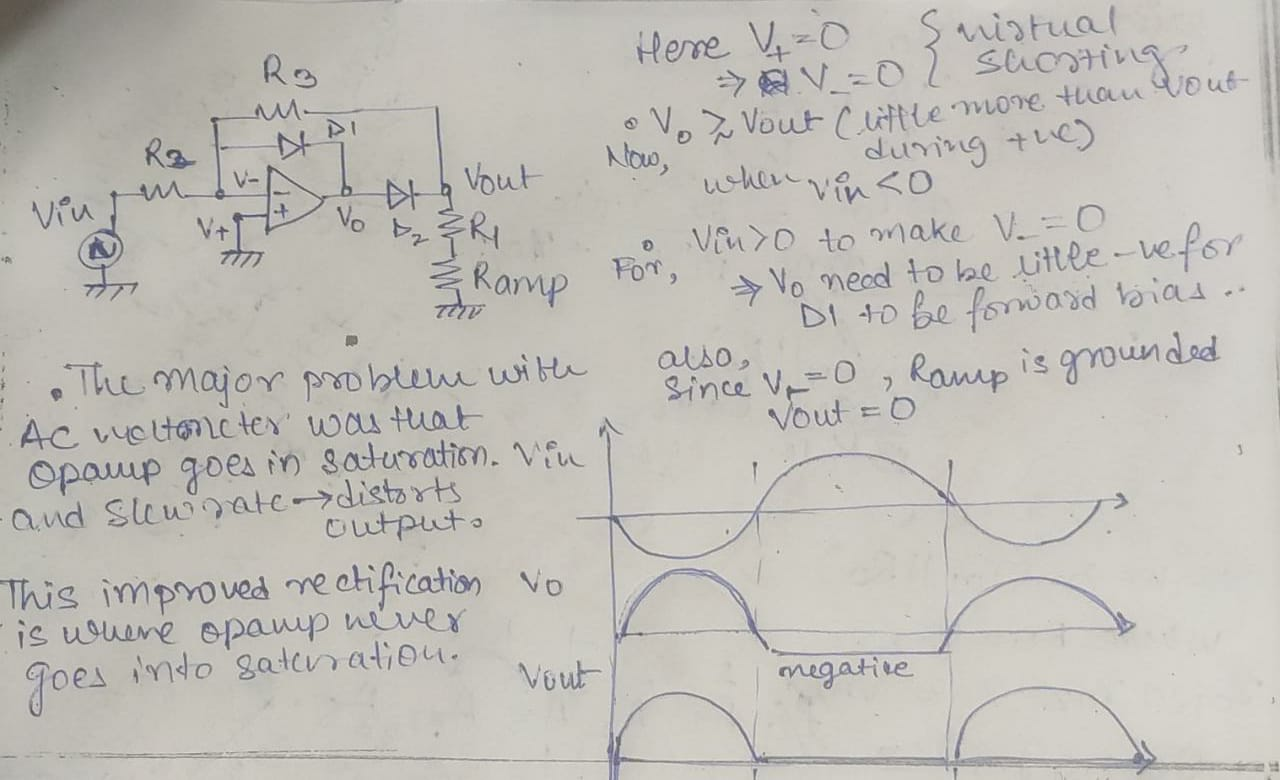 R3
D1
R2
V-
Vin
V+
Vo
D2
Vout
R1
Ramp
Here V+=0 { virtual
⇒ V-=0 { shorting
• Vo ≳ Vout (little more than Vout
during +ve)
Now,
when Vin<0
• Vin>0 to make V-=0
For,
⇒ Vo need to be little -ve for
D1 to be forward bias ..
also,
since V-=0 , Ramp is grounded
Vout = 0
• The major problem with
AC voltmeter was that
opamp goes in saturation.
and slew rate → distorts
output.
This improved rectification
is where opamp never
goes into saturation.
Vin
Vo
negative
Vout